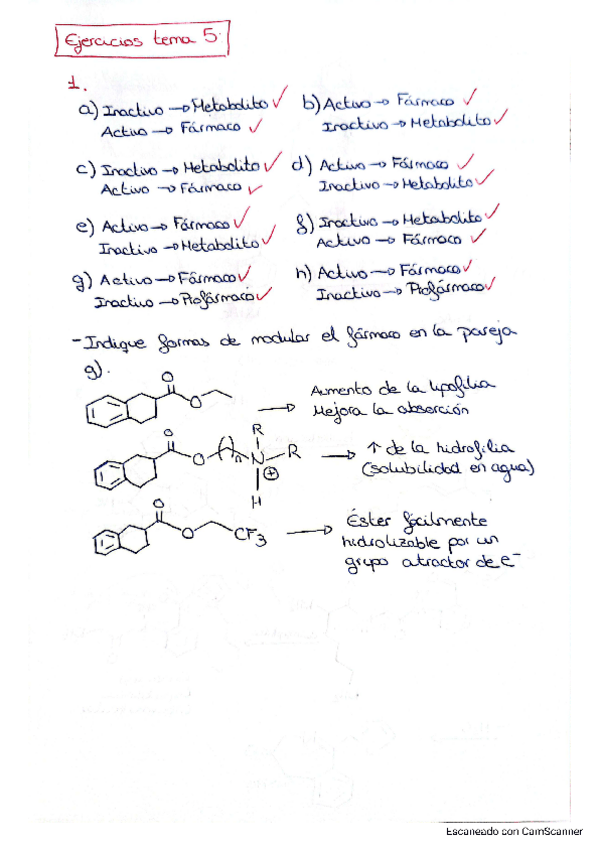 Ejercicios tema 5.
1.
a) Inactivo → Metabolito ✓
Activo → Fármaco ✓
b) Activo → Fármaco ✓
Inactivo → Metabolito ✓
c) Inactivo → Metabolito ✓
Activo → Fármaco ✓
d) Activo → Fármaco ✓
Inactivo → Metabolito ✓
e) Activo → Fármaco ✓
Inactivo → Metabolito ✓
f) Inactivo → Metabolito ✓
Activo → Fármaco ✓
g) Activo → Fármaco ✓
Inactivo → Profármaco ✓
h) Activo → Fármaco ✓
Inactivo → Profármaco ✓
- Indique formas de modular el fármaco en la pareja
g).
O
O
→ Aumento de la lipofilia
Mejora la absorción
O
O
n
R
N
R
⊕
H
→ ↑ de la hidrofilia
(solubilidad en agua)
O
O
CF3
→ Éster fácilmente
hidrolizable por un
grupo atractor de e-
Escaneado con CamScanner